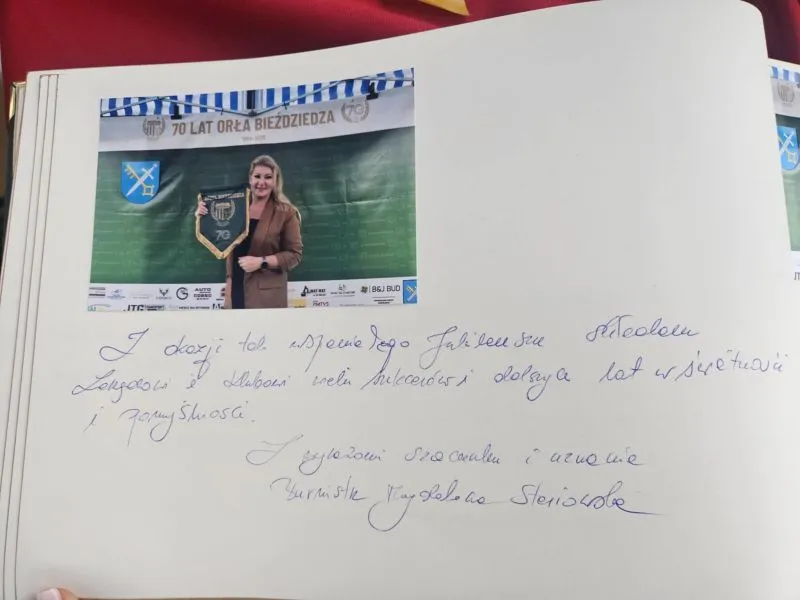 70 LAT ORŁA BIEŹDZIEDZA
70
70
AUTO
B&J BUD
JTC
Z okazji tak wspaniałego Jubileuszu składam
Zarządowi i Klubowi wielu sukcesów i dalszych lat w świetności
i pomyślności.
Z wyrazami szacunku i uznania
Burmistrz Magdalena